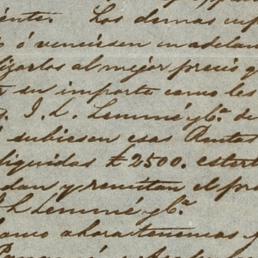 Los demas cup
ó venciesen en adelan
lizarlos al mejor precio y
su importe como les
J. L. Lemmé y Cª. de
subiesen esas Rentas
liquidas £2500. esterl
dan y remitan el pro
L Lemmé y Cª.
como ahora tenemos y